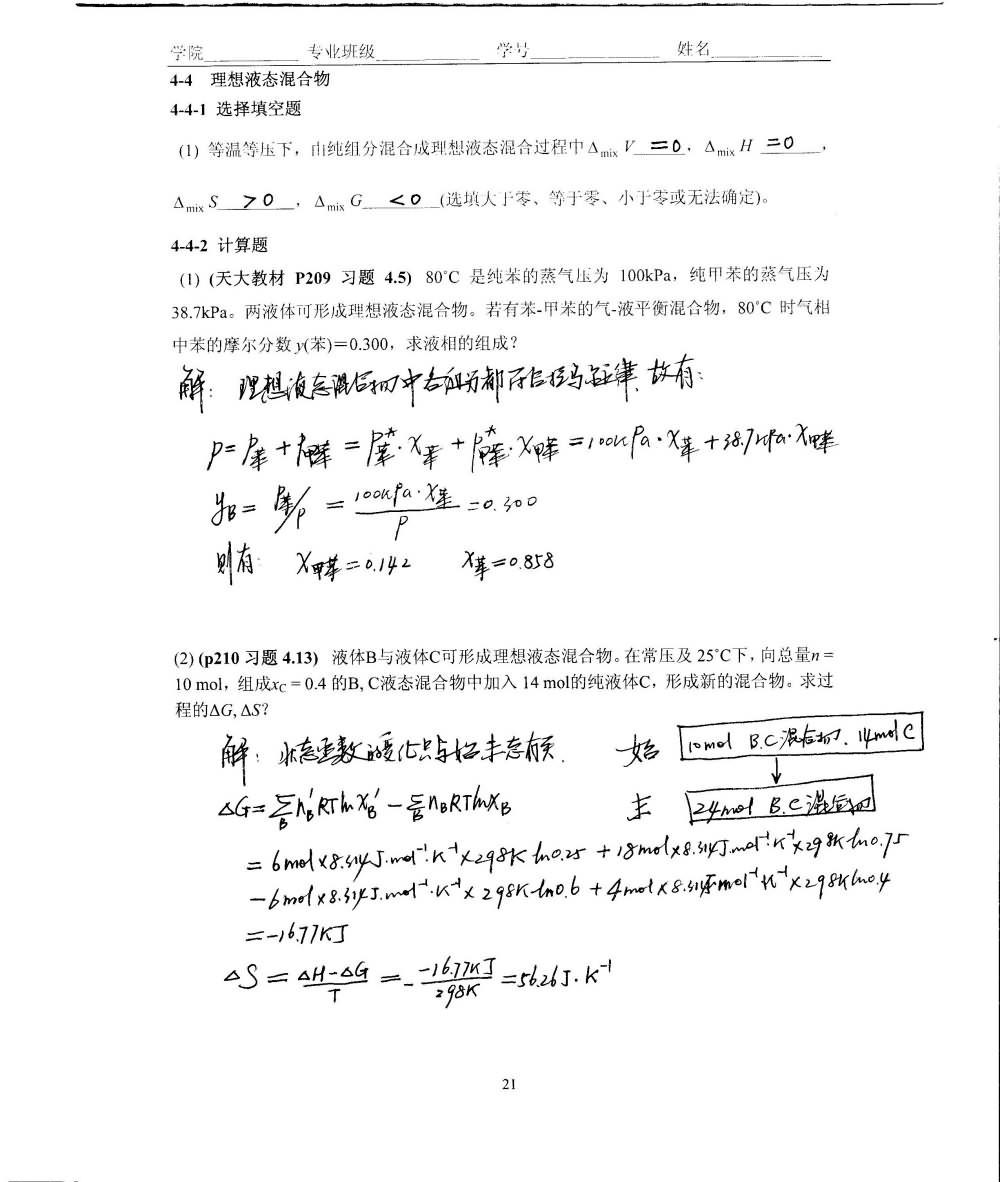 学院 专业班级 学号 姓名
4-4 理想液态混合物
4-4-1 选择填空题
(1) 等温等压下，由纯组分混合成理想液态混合过程中Δmix V =0，Δmix H =0，
Δmix S >0，Δmix G <0 (选填大于零、等于零、小于零或无法确定)。
4-4-2 计算题
(1) (天大教材 P209 习题 4.5) 80°C 是纯苯的蒸气压为 100kPa，纯甲苯的蒸气压为
38.7kPa。两液体可形成理想液态混合物。若有苯-甲苯的气-液平衡混合物，80°C 时气相
中苯的摩尔分数 y(苯)＝0.300，求液相的组成？
解：理想液态混合物中各组分都符合拉乌尔定律，故有：
P=P苯+P甲苯=P*苯·x苯+P*甲苯·x甲苯=100kPa·x苯+38.7kPa·x甲苯
yB=P苯/P=100kPa·x苯/P=0.300
则有：x甲苯=0.142 x苯=0.858
(2) (p210 习题 4.13) 液体B与液体C可形成理想液态混合物。在常压及 25°C下，向总量n =
10 mol，组成xC = 0.4 的B, C液态混合物中加入 14 mol的纯液体C，形成新的混合物。求过
程的ΔG, ΔS?
解：状态函数的变化只与始末态有关. 始 10mol B.C混合物、14mol C
↓
ΔG=∑B n'BRTlnx'B-∑B nBRTlnxB 末 24mol B.C混合物
=6mol×8.314J·mol⁻¹·K⁻¹×298K ln0.25+18mol×8.314J·mol⁻¹·K⁻¹×298K ln0.75
-6mol×8.314J·mol⁻¹·K⁻¹×298K·ln0.6+4mol×8.314J·mol⁻¹·K⁻¹×298K ln0.4
=-16.77KJ
ΔS=ΔH-ΔG/T=-\-16.77KJ/298K=56.26J·K⁻¹
21